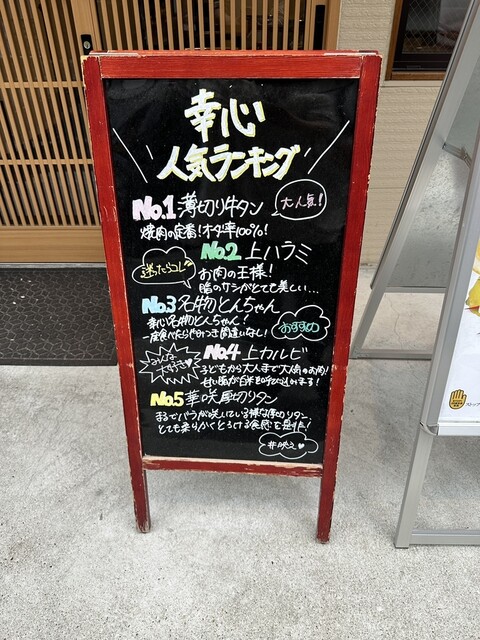 幸心
人気ランキング
No.1 薄切り牛タン
大人気!
焼肉の定番!オーダー率100%!
No.2 上ハラミ
迷ったらコレ
お肉の王様!
脂のサシがとても美しい...
No.3 名物とんちゃん
幸心名物とんちゃん!
おすすめ
一度食べたらやみつき間違いなし!
No.4 上カルビ
みんな大好き♥
子どもから大人まで大人気のお肉!
甘い脂が白米を呼び込みます!
No.5 華咲厚切りタン
まるでバラが咲いている様な厚切りタン、
とても柔らかくとろける食感を是非!
#映え♥